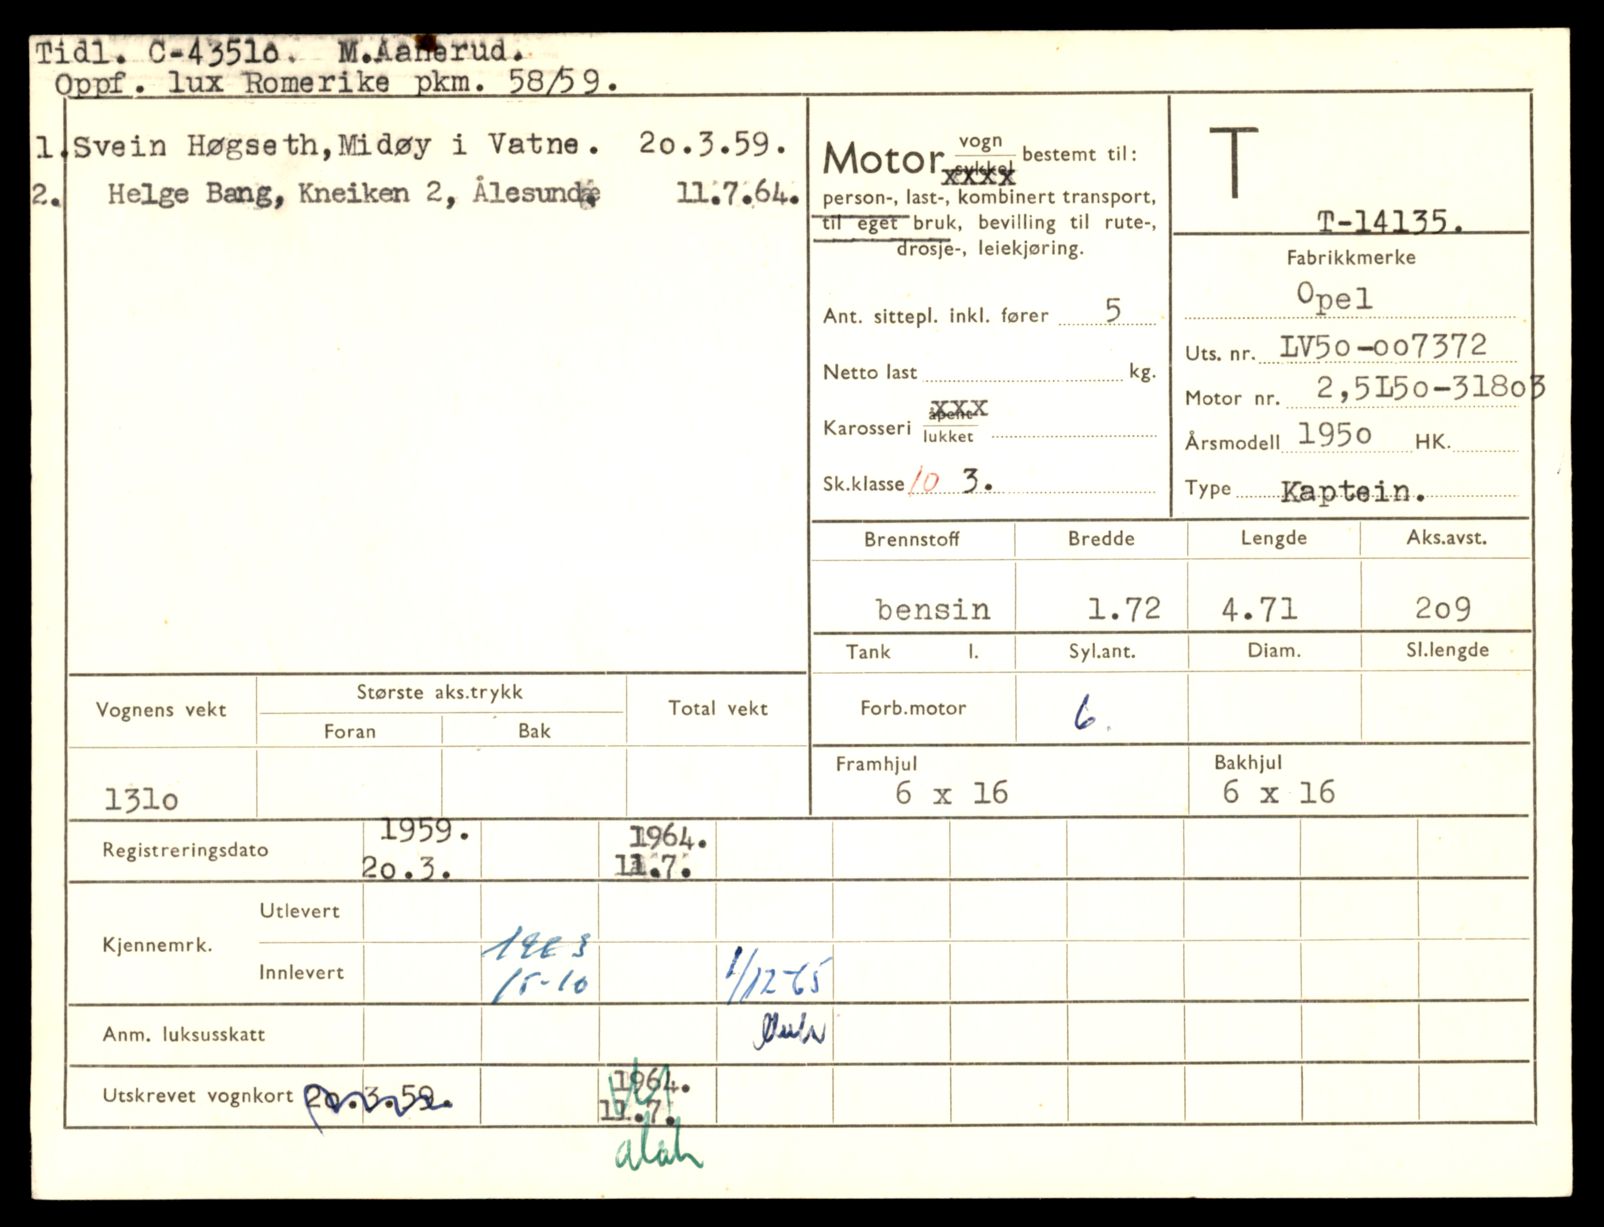 Tidl. C-4351o. M.Aanerud.
Oppf. lux Romerike pkm. 58/59.
1. Svein Høgseth,Midøy i Vatne. 2o.3.59.
2. Helge Bang, Kneiken 2, Ålesund 11.7.64.
Motor vogn bestemt til:
sykkel xxxx
person-, last-, kombinert transport,
til eget bruk, bevilling til rute-,
drosje-, leiekjøring.
Ant. sittepl. inkl. fører 5
Netto last kg.
Karosseri åpent xxx
lukket
Sk.klasse 10 3.
T
T-14135.
Fabrikkmerke
Opel
Uts. nr. LV5o-oo7372
Motor nr. 2,5L5o-318o3
Årsmodell 195o HK.
Type Kaptein.
Brennstoff Bredde Lengde Aks.avst.
bensin 1.72 4.71 2o9
Tank l. Syl.ant. Diam. Sl.lengde
Forb.motor 6
Framhjul Bakhjul
6 x 16 6 x 16
Vognens vekt Største aks.trykk Total vekt
Foran Bak
131o
Registreringsdato 1959. 1964.
2o.3. 11.7.
Kjennemrk. Utlevert
Innlevert 15-10 1/12-65
Anm. luksusskatt
Utskrevet vognkort 2o.3.59. 1964.
11.7.